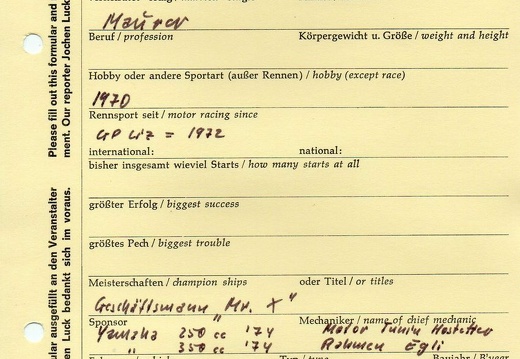 Maurer
Beruf / profession
Körpergewicht u. Größe / weight and height
Hobby oder andere Sportart (außer Rennen) / hobby (except race)
1970
Rennsport seit / motor racing since
GP Liz = 1972
international:
national:
bisher insgesamt wieviel Starts / how many starts at all
größter Erfolg / biggest success
größtes Pech / biggest trouble
Meisterschaften / champion ships
oder Titel / or titles
Geschäftsmann "Mr. X"
Sponsor
Mechaniker / name of chief mechanic
Yamaha 250 cc '74
Motor Tunin Hostettler
" 350 cc '74
Rahmen Egli
Please fill out this formular and
ment. Our reporter Jochen Luck
ular ausgefüllt an den Veranstalter
en Luck bedankt sich im voraus.